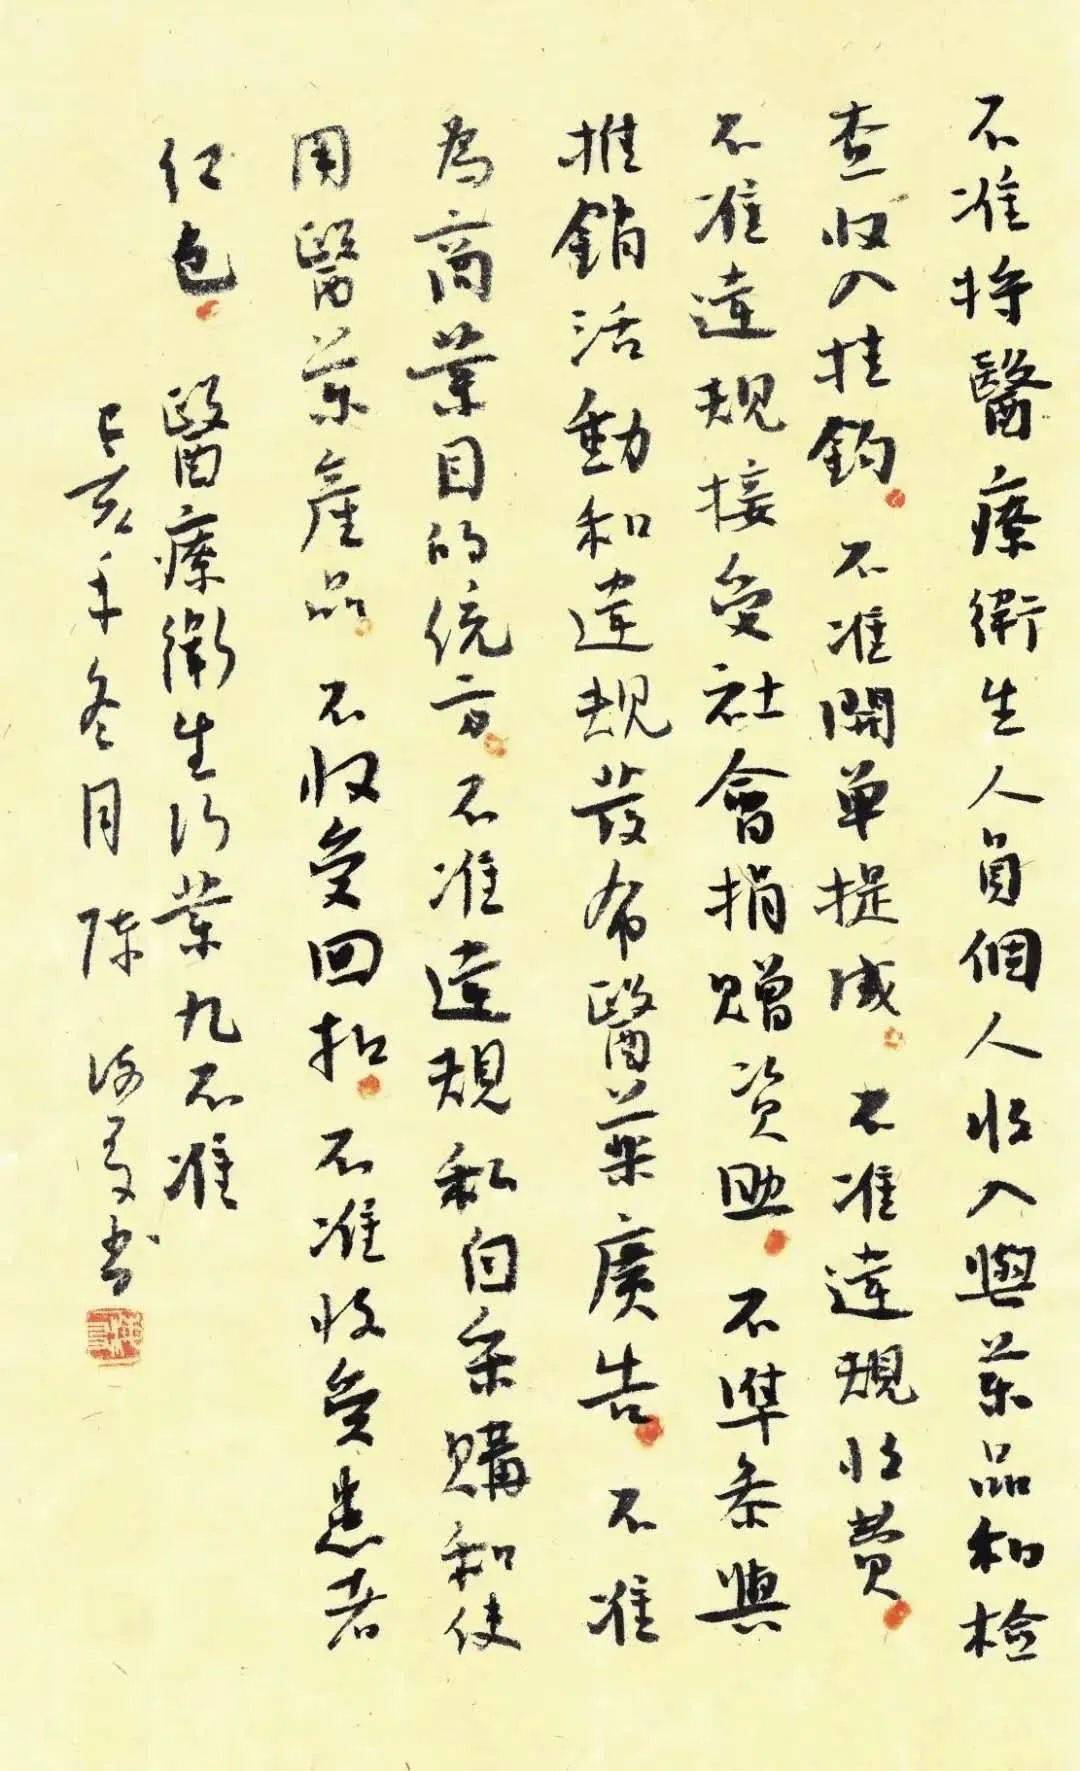 不准将醫療衛生人員個人收入與藥品和检
查收入挂鈎不准開單提成不准違規收費
不准違規接受社會捐贈資助不準参與
推銷活動和違規發布醫藥廣告不准
為商業目的統方不准違規私自采購和使
用醫藥產品不收受回扣不准收受患者
红包醫療衛生行業九不准
己亥年冬月陈书